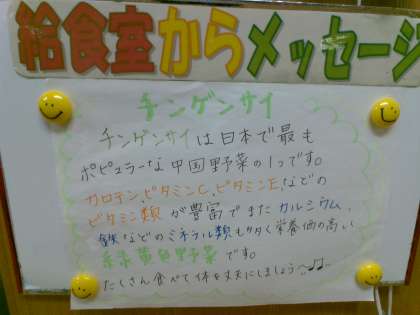 給食室からメッセージ
チンゲンサイ
チンゲンサイは日本で最も
ポピュラーな中国野菜の1つです。
カロテン、ビタミンC、ビタミンEなどの
ビタミン類が豊富でまたカルシウム、
鉄などのミネラル類も多く栄養価の高い
緑黄色野菜です。
たくさん食べて体を丈夫にしましょう〜♫♪